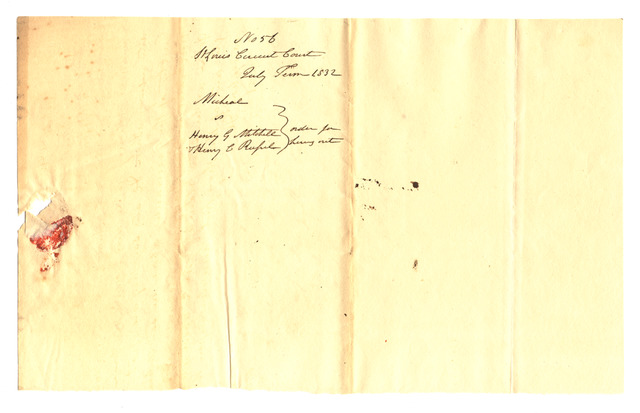 No 56
St Louis Circuit Court
July Term 1832
Micheal
vs
Henry G Mitchell
& Henry C Russel
order for
hiring out